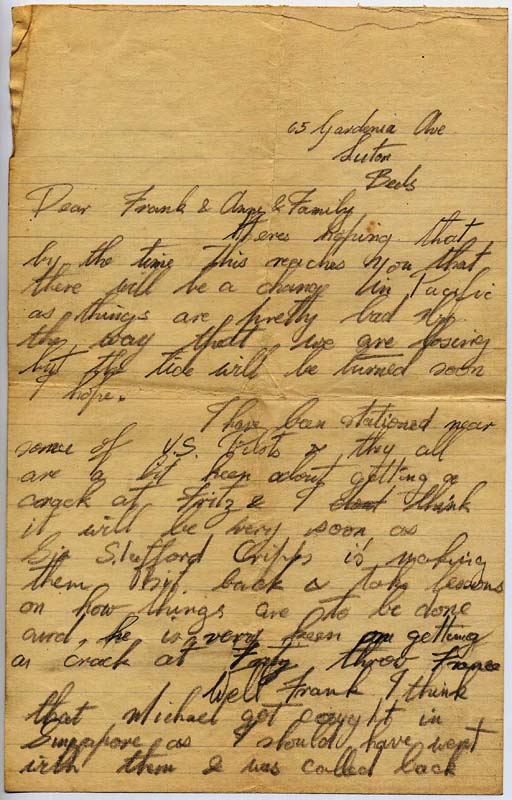 65 Gardenia Ave
Luton
Beds
Dear Frank & Anny & Family
Heres hoping that
by the time This reaches you that
there will be a change in Pacific
as things are pretty bad
the way that we are losing
but the tide will be turned soon
I hope.
I have been stationed near
some of U.S. Pilots & they all
are a bit keen about getting a
crack at Fritz & I think
it will be very soon as
Sir Stafford Cripps is making
them sit back & take lessons
on how things are to be done
and he is very keen on getting
a crack at throw France
Well Frank I think
that Michael got caught in
Singapore as I should have went
with them & was called back